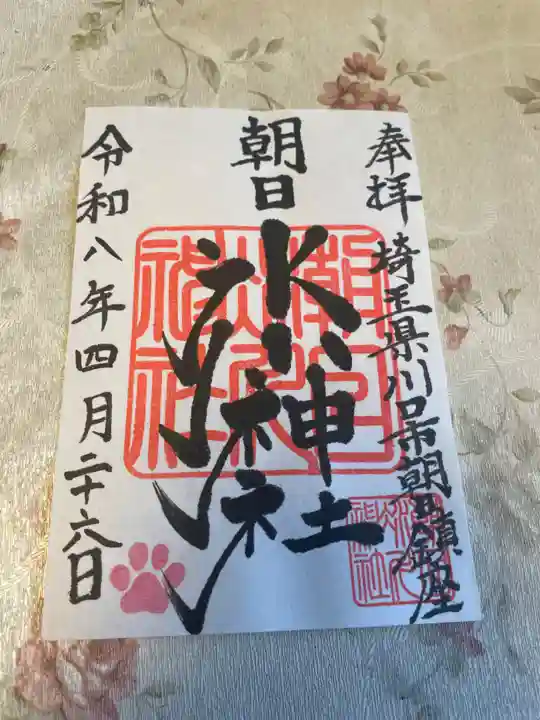 奉拝 埼玉県川口市朝日鎮座
朝日氷川神社
令和八年四月二十六日